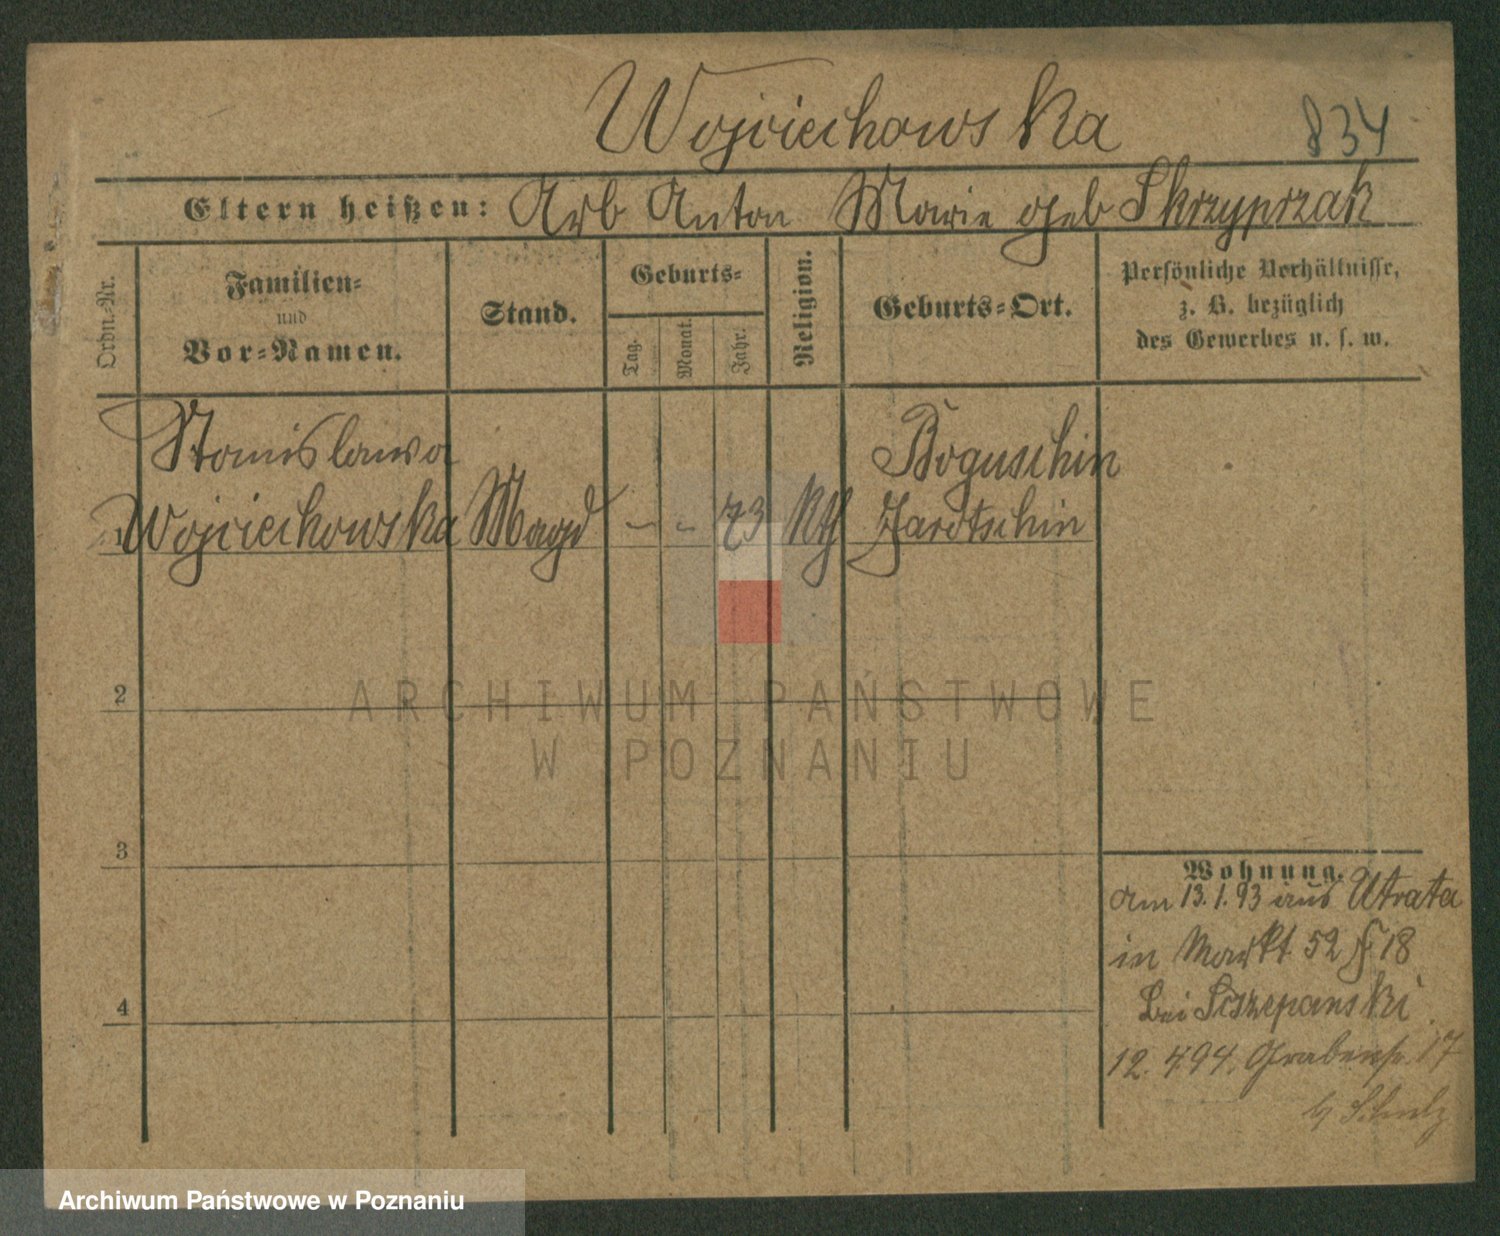 Wojciechowska 834
Eltern heißen: Arb Anton Marie geb Skrzypczak
Ordn.-Nr.
Familien-
und
Vor-Namen.
Stand.
Geburts-
Tag.
Monat.
Jahr.
Religion.
Geburts-Ort.
Persönliche Verhältnisse,
z. B. bezüglich
des Gewerbes u. s. w.
Stanislawa Boguschin
1 Wojciechowska Magd - - 73 Kth Jarotschin
2
3
4
Wohnung.
am 13.1.93 aus Utrata
in Markt 52 18
bei Sczepanski
12. 4 94. Grabenstr. 17
b/ Schulz
ARCHIWUM PAŃSTWOWE
W POZNANIU
Archiwum Państwowe w Poznaniu